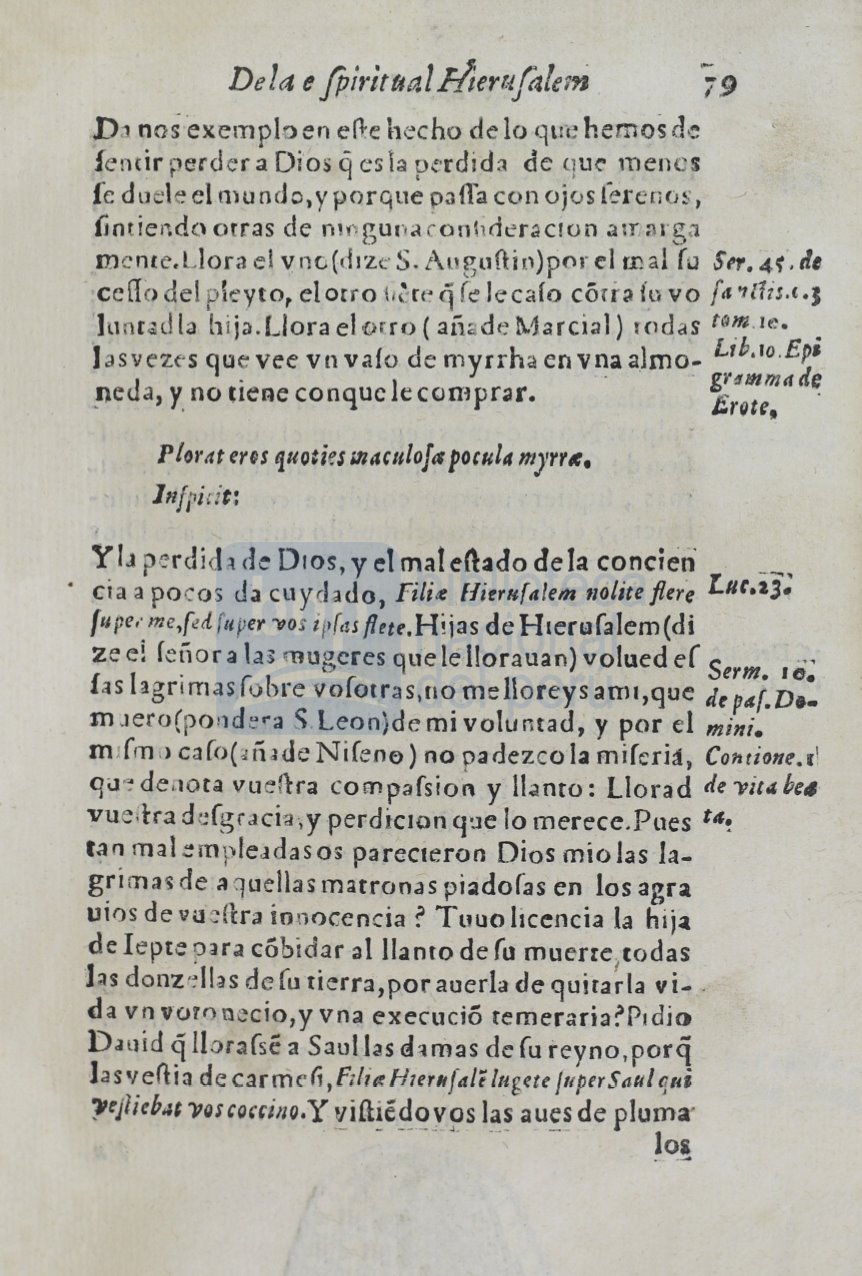 De la e ſpiritual Hieruſalem 79
Da nos exemplo en eſte hecho de lo que hemos de
ſentir perder a Dios q̃ es la perdida de que menos
ſe duele el mundo, y porque paſſa con ojos ſerenos,
ſintiendo otras de ninguna conſideracion amarga
mente. Llora el vno (dize S. Auguſtin) por el mal ſu
ceſſo del pleyto, el otro q̃ ſe le caſo cõtra ſu vo
luntad la hija. Llora el otro (añade Marcial) todas
las vezes que vee vn vaſo de myrrha en vna almo-
neda, y no tiene conque le comprar.
Ser. 45. de
ſanctis. c. 3
tom. 10.
Lib. 10. Epi
gramma de
Erote,
Plorat eros quoties maculoſæ pocula myrræ.
Inſpicit:
Y la perdida de Dios, y el mal eſtado de la concien
cia a pocos da cuydado, Filiæ Hieruſalem nolite flere
ſuper me, ſed ſuper vos ipſas flete. Hijas de Hieruſalem (di
ze el ſeñor a las mugeres que le llorauan) volued eſ
ſas lagrimas ſobre voſotras, no me lloreys a mi, que
muero (pondera S. Leon) de mi voluntad, y por el
miſmo caſo (añade Niſeno) no padezco la miſeria,
que denota vueſtra compaſsion y llanto: Llorad
vueſtra deſgracia, y perdicion que lo merece. Pues
tan mal empleadas os parecieron Dios mio las la-
grimas de aquellas matronas piadoſas en los agra
uios de vueſtra innocencia? Tuuo licencia la hija
de Iepte para cõbidar al llanto de ſu muerte, todas
las donzellas de ſu tierra, por auerla de quitarla vi-
da vn voto necio, y vna execuciõ temeraria? Pidio
Dauid q̃ lloraſsẽ a Saul las damas de ſu reyno, porq̃
las veſtia de carmeſi, Filiæ Hieruſalẽ lugete ſuper Saul qui
veſtiebat vos coccino. Y viſtiẽdo vos las aues de pluma
los
Luc. 23.
Serm. 10.
de paſ. Do-
mini.
Contione. 1
de vita bea
ta.